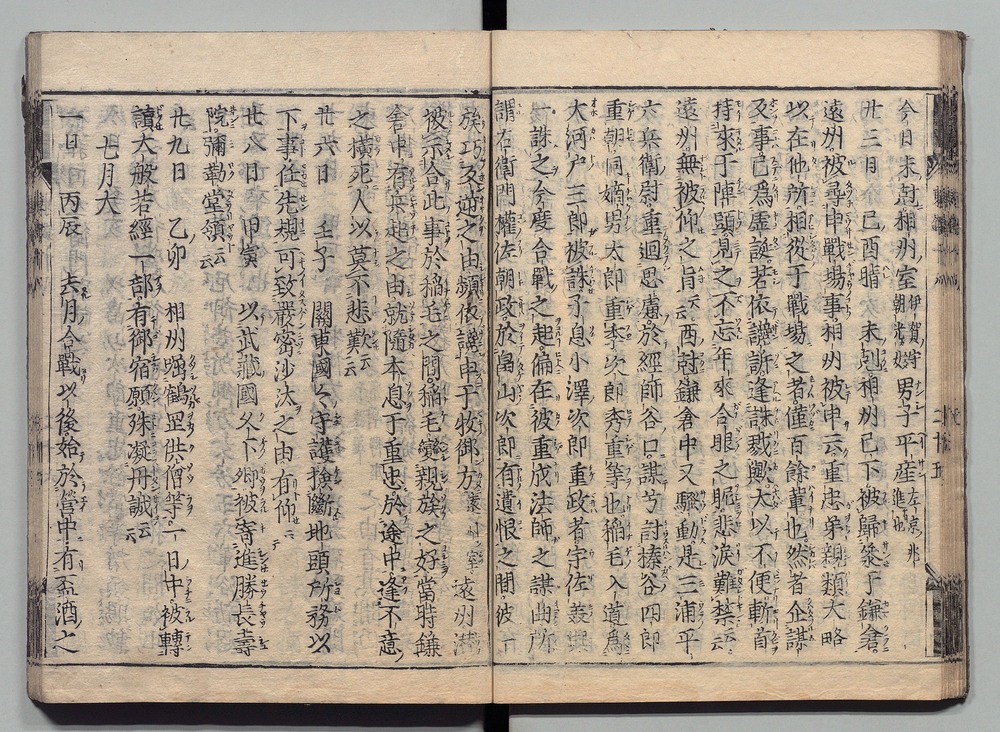 今日未剋相州室伊賀守朝光女男子平産左京兆進也
廿三日 己酉晴 未剋相州已下被歸參于鎌倉
遠州被尋申戰塲事相州被申云重忠弟親類大略
以在他所相從于戰塲之者僅百餘輩也然者企謀
反事已爲虚誕若依讒訴逢誅戮歟太以不便斬首
持來于陣頭見之不忘年來合眼之眤悲涙難禁云云
遠州無被仰之旨云云西剋鎌倉中又騷動是三浦平
六兵衛尉重廻思慮於經師谷口謀兮討榛谷四郎
重朝同嫡男太郎重季次郎秀重等也稲毛入道爲
大河戸三郎被誅子息小澤次郎重政者宇佐美與
一誅之今度合戰之起偏在彼重成法師之謀曲所
謂右衛門權佐朝政於畠山次郎有遺恨之間彼一
族巧反逆之由頻依讒申于牧御方遠州室遠州潜
被示合此事於稲毛之間稲毛變親族之好當時鎌
倉中有兵起之由就隨本息于重忠於途中逢不意
之横死人以莫不悲歎云云
廿六日 壬子 關東國々守護撿斷地頭所務以
下事任先規可致嚴密沙汰之由有仰
廿八日 甲寅 以武藏國久下郷被寄進勝長壽
院彌勒堂領云云
廿九日 乙卯 相州囑鶴罡供僧等一日中被轉
讀大般若經一部有御宿願殊凝丹誠云云
七月大
一日 丙辰 去月合戰以後始於營中有盃酒之